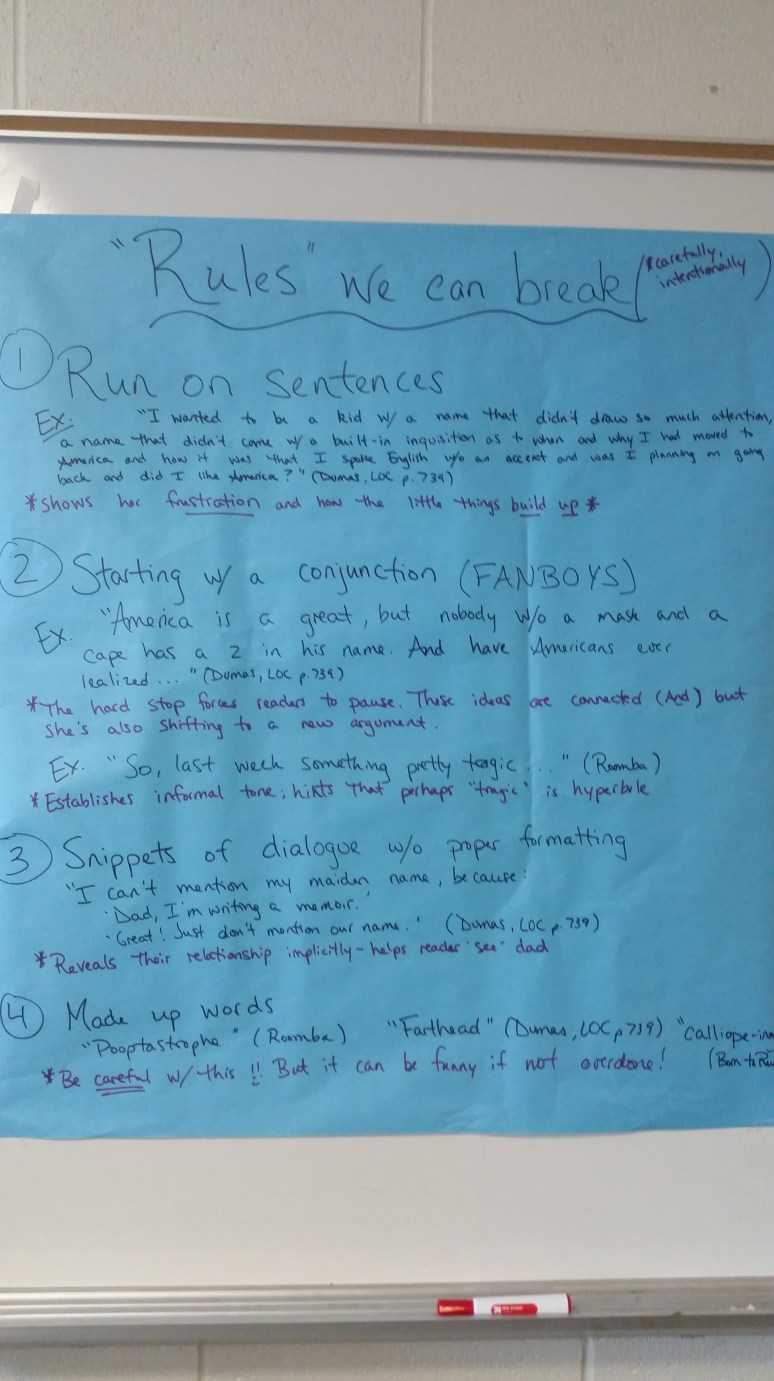 "Rules" we can break (*carefully, intentionally)
① Run on sentences
Ex: "I wanted to be a kid w/ a name that didn't draw so much attention,
a name that didn't come w/ a built-in inquisition as to when and why I had moved to
America and how it was that I spoke English w/o an accent and was I planning on going
back and did I like America?" (Dumas, LOC p.739)
*Shows her frustration and how the little things build up*
② Starting w/ a conjunction (FANBOYS)
Ex. "America is a great, but nobody w/o a mask and a
cape has a z in his name. And have Americans ever
realized..." (Dumas, LOC p.739)
*The hard stop forces readers to pause. These ideas are connected (And) but
she's also shifting to a new argument.
Ex. "So, last week something pretty tragic..." (Roomba)
*Establishes informal tone; hints that perhaps "tragic" is hyperbole
③ Snippets of dialogue w/o proper formatting
"I can't mention my maiden name, because:
'Dad, I'm writing a memoir.'
'Great! Just don't mention our name.'" (Dumas, LOC p.739)
*Reveals their relationship implicitly - helps reader "see" dad
④ Made up words
"Pooptastrophe" (Roomba) "Farthead" (Dumas, LOC p739) "calliope-
*Be careful w/ this!! But it can be funny if not overdone! (Born to